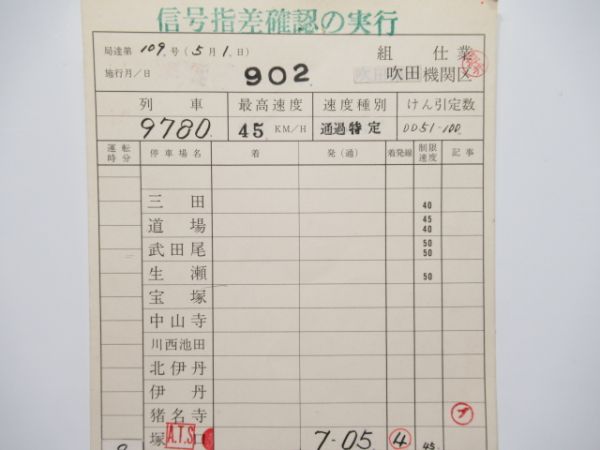 信号指差確認の実行
局達第 109 号 (5 月 1 日)
組 仕業
施行月/日 902 吹田機関区
列車 最高速度 速度種別 けん引定数
9780 45 KM/H 通過特定 DD51-100
運転時分 停車場名 着 発(通) 着発線 制限速度 記事
三田 40
道場 45 40
武田尾 50 50
生瀬 50
宝塚
中山寺
川西池田
北伊丹
伊丹
猪名寺
塚口 A.T.S 7-05 4 45